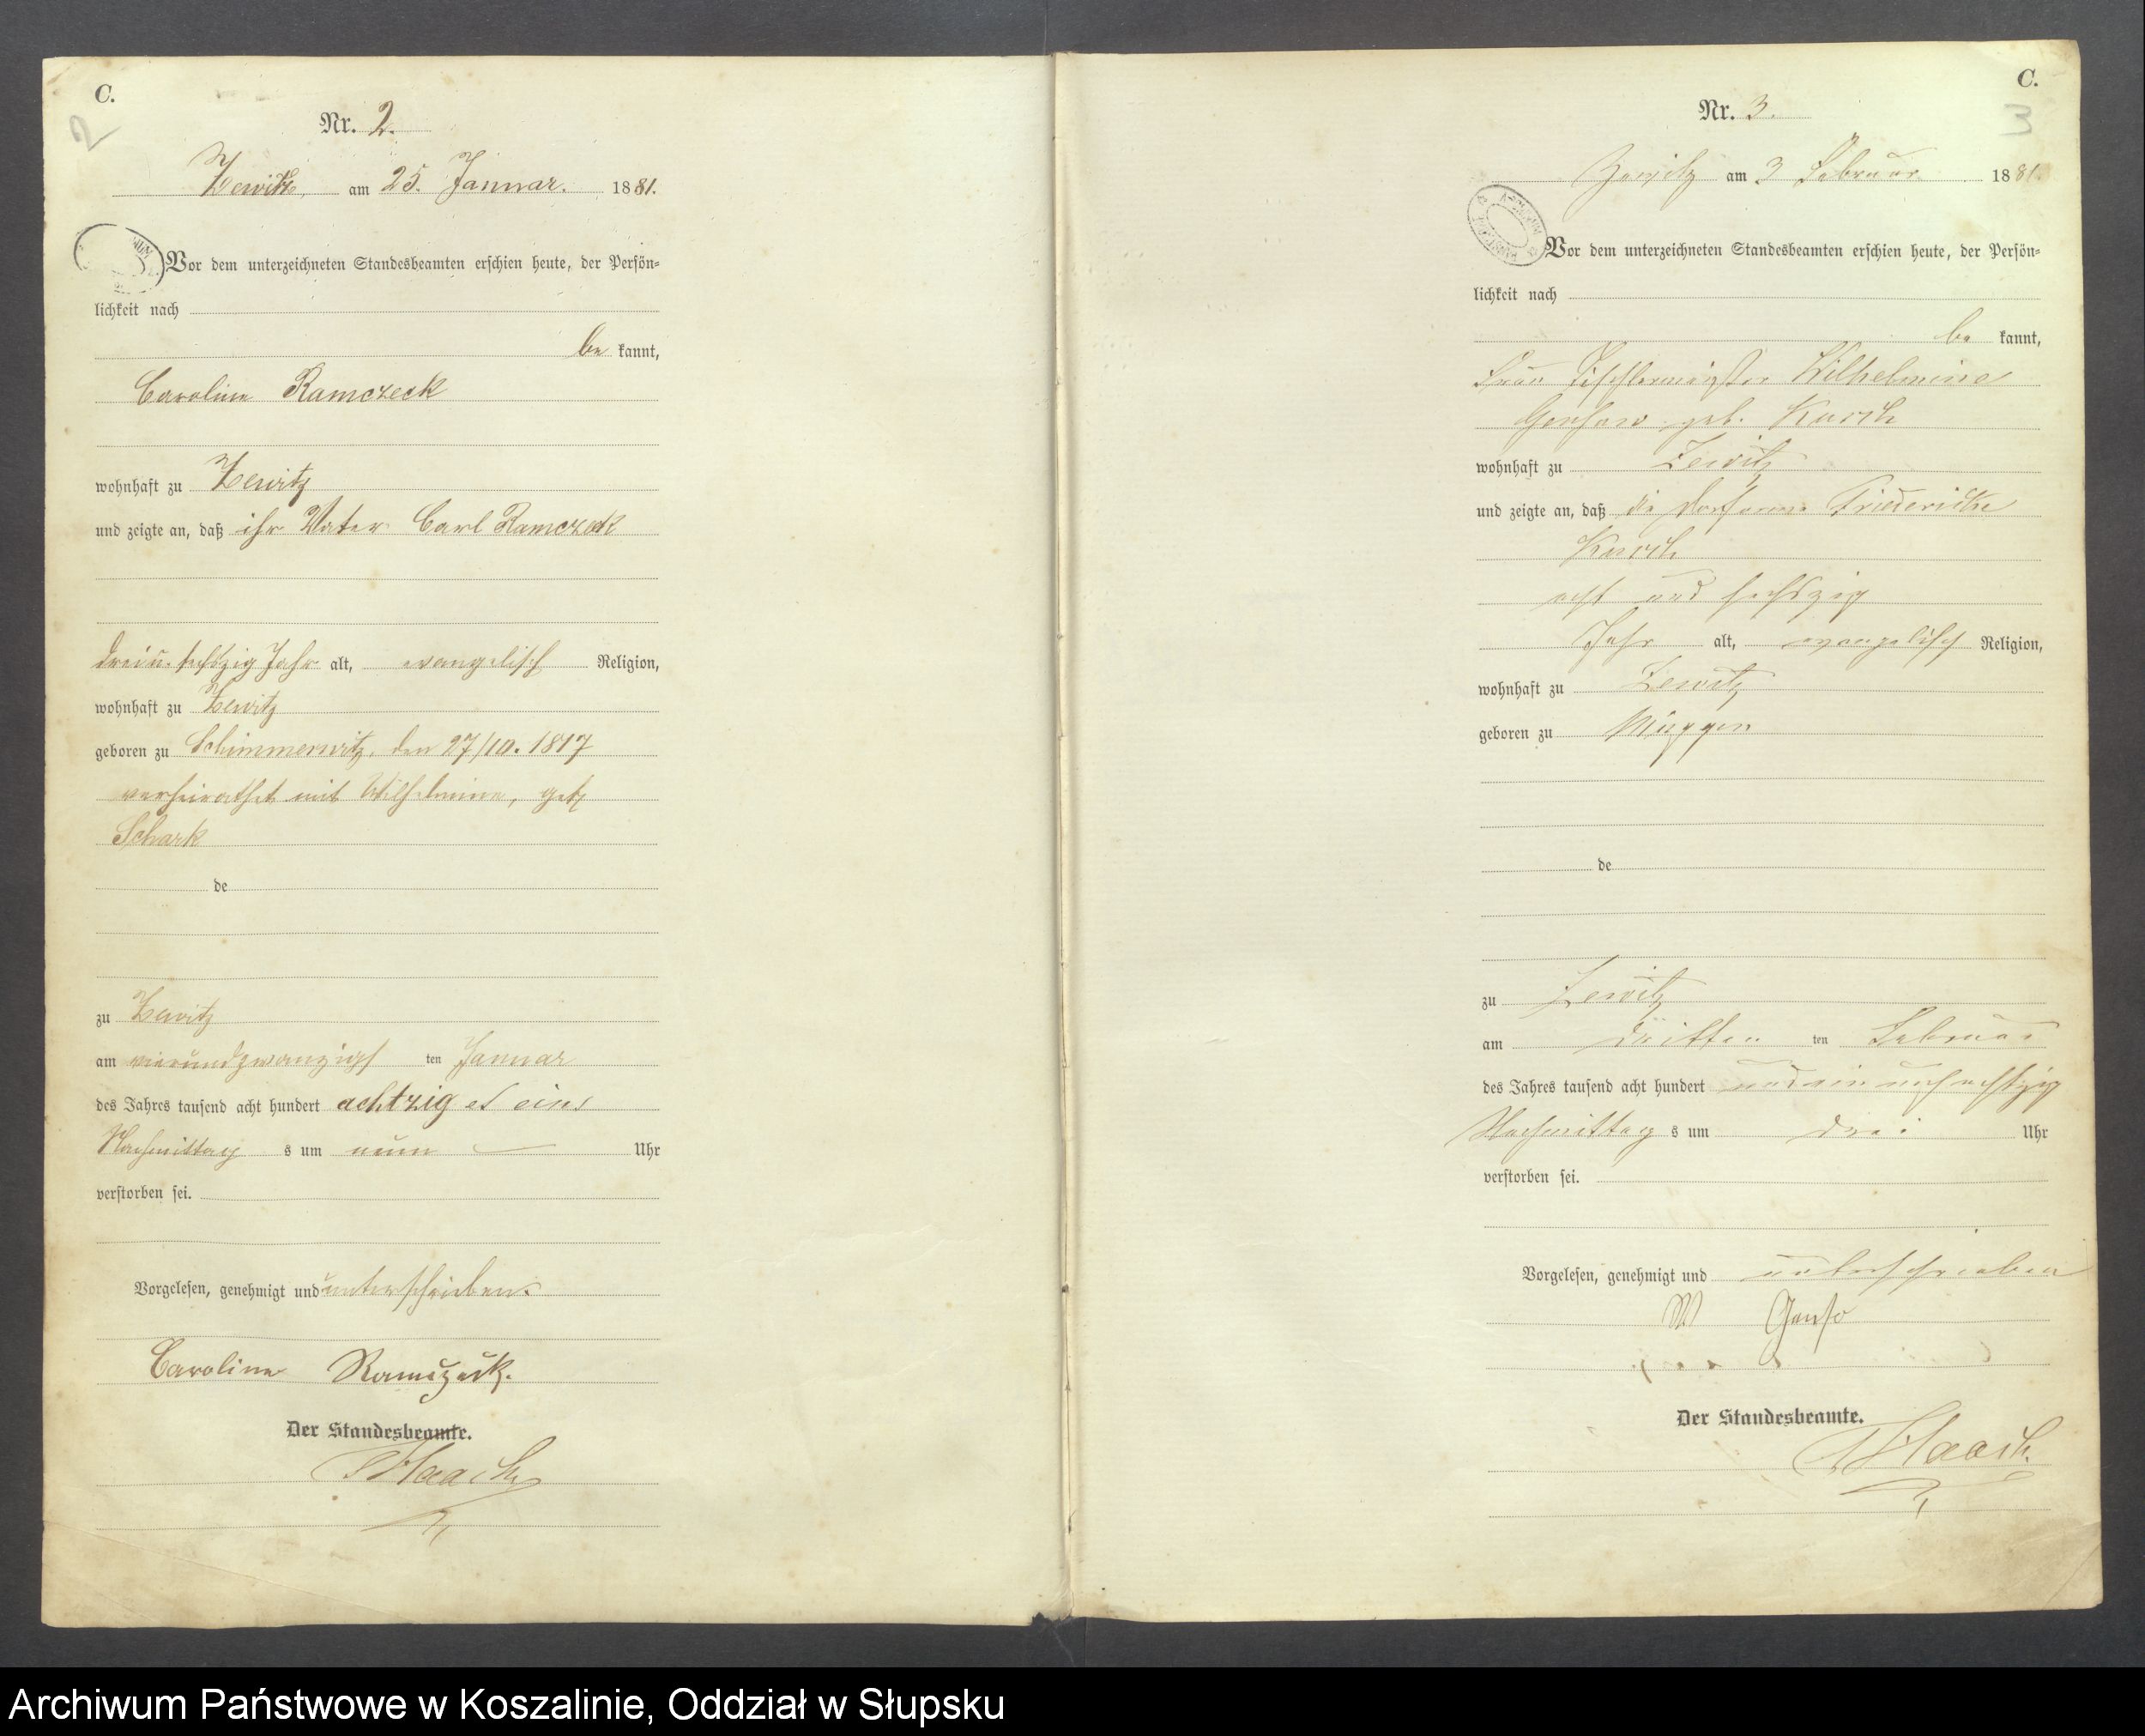 C.
2
Nr. 2.
Zewitz am 25. Januar. 1881.
Vor dem unterzeichneten Standesbeamten erschien heute, der Persön=
lichkeit nach
be kannt,
Caroline Ramczeck
wohnhaft zu Zewitz
und zeigte an, daß ihr Vater Carl Ramczeck
drei u. sechszig Jahr alt, evangelisch Religion,
wohnhaft zu Zewitz
geboren zu Schimmerwitz, den 27/10. 1817
verheirathet mit Wilhelmine, geb.
Schark
de
zu Zewitz
am vierundzwanzigs ten Januar
des Jahres tausend acht hundert achtzig et eins
Nachmittag s um neun Uhr
verstorben sei.
Vorgelesen, genehmigt und unterschrieben.
Caroline Ramczeck.
Der Standesbeamte.
Haack
C.
3
Nr. 3.
Zewitz am 3 Februar 1881.
Vor dem unterzeichneten Standesbeamten erschien heute, der Persön=
lichkeit nach
be kannt,
Frau Tischlermeister Wilhelmine
geb.
wohnhaft zu Zewitz
und zeigte an, daß die Dorfarme Friedericke
acht und sechszig
Jahr alt, evangelisch Religion,
wohnhaft zu Zewitz
geboren zu
de
zu Zewitz
am dritten ten Februar
des Jahres tausend acht hundert und ein und achtzig
Nachmittag s um drei Uhr
verstorben sei.
Vorgelesen, genehmigt und unterschrieben
W Genso
Der Standesbeamte.
Haack.
Archiwum Państwowe w Koszalinie, Oddział w Słupsku